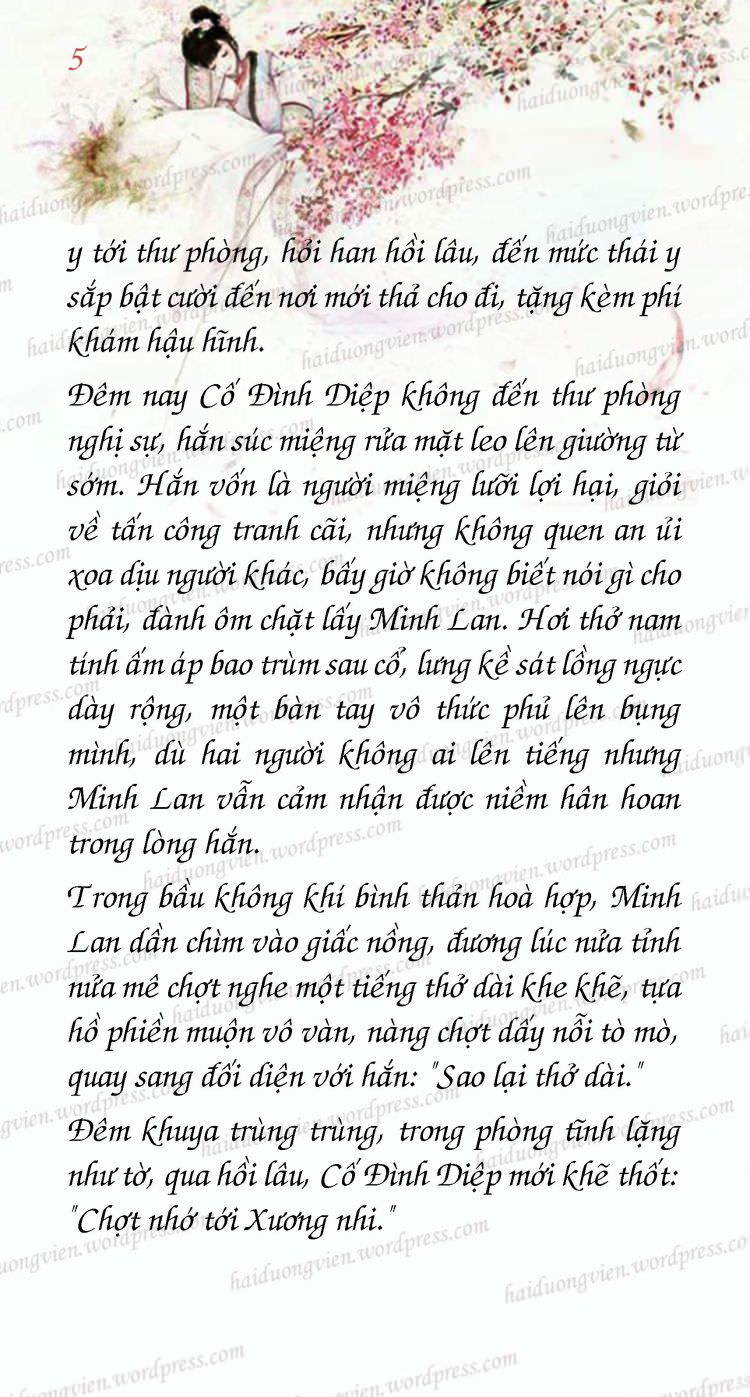 5
y tới thư phòng, hỏi han hồi lâu, đến mức thái y
sắp bật cười đến nơi mới thả cho đi, tặng kèm phí
khám hậu hĩnh.
Đêm nay Cố Đình Diệp không đến thư phòng
nghị sự, hắn súc miệng rửa mặt leo lên giường từ
sớm. Hắn vốn là người miệng lưỡi lợi hại, giỏi
về tấn công tranh cãi, nhưng không quen an ủi
xoa dịu người khác, bấy giờ không biết nói gì cho
phải, đành ôm chặt lấy Minh Lan. Hơi thở nam
tính ấm áp bao trùm sau cổ, lưng kề sát lồng ngực
dày rộng, một bàn tay vô thức phủ lên bụng
mình, dù hai người không ai lên tiếng nhưng
Minh Lan vẫn cảm nhận được niềm hân hoan
trong lòng hắn.
Trong bầu không khí bình thản hoà hợp, Minh
Lan dần chìm vào giấc nồng, đương lúc nửa tỉnh
nửa mê chợt nghe một tiếng thở dài khe khẽ, tựa
hồ phiền muộn vô vàn, nàng chợt dấy nỗi tò mò,
quay sang đối diện với hắn: "Sao lại thở dài."
Đêm khuya trùng trùng, trong phòng tĩnh lặng
như tờ, qua hồi lâu, Cố Đình Diệp mới khẽ thốt:
"Chợt nhớ tới Xương nhi."
haiduongvien.wordpress.com